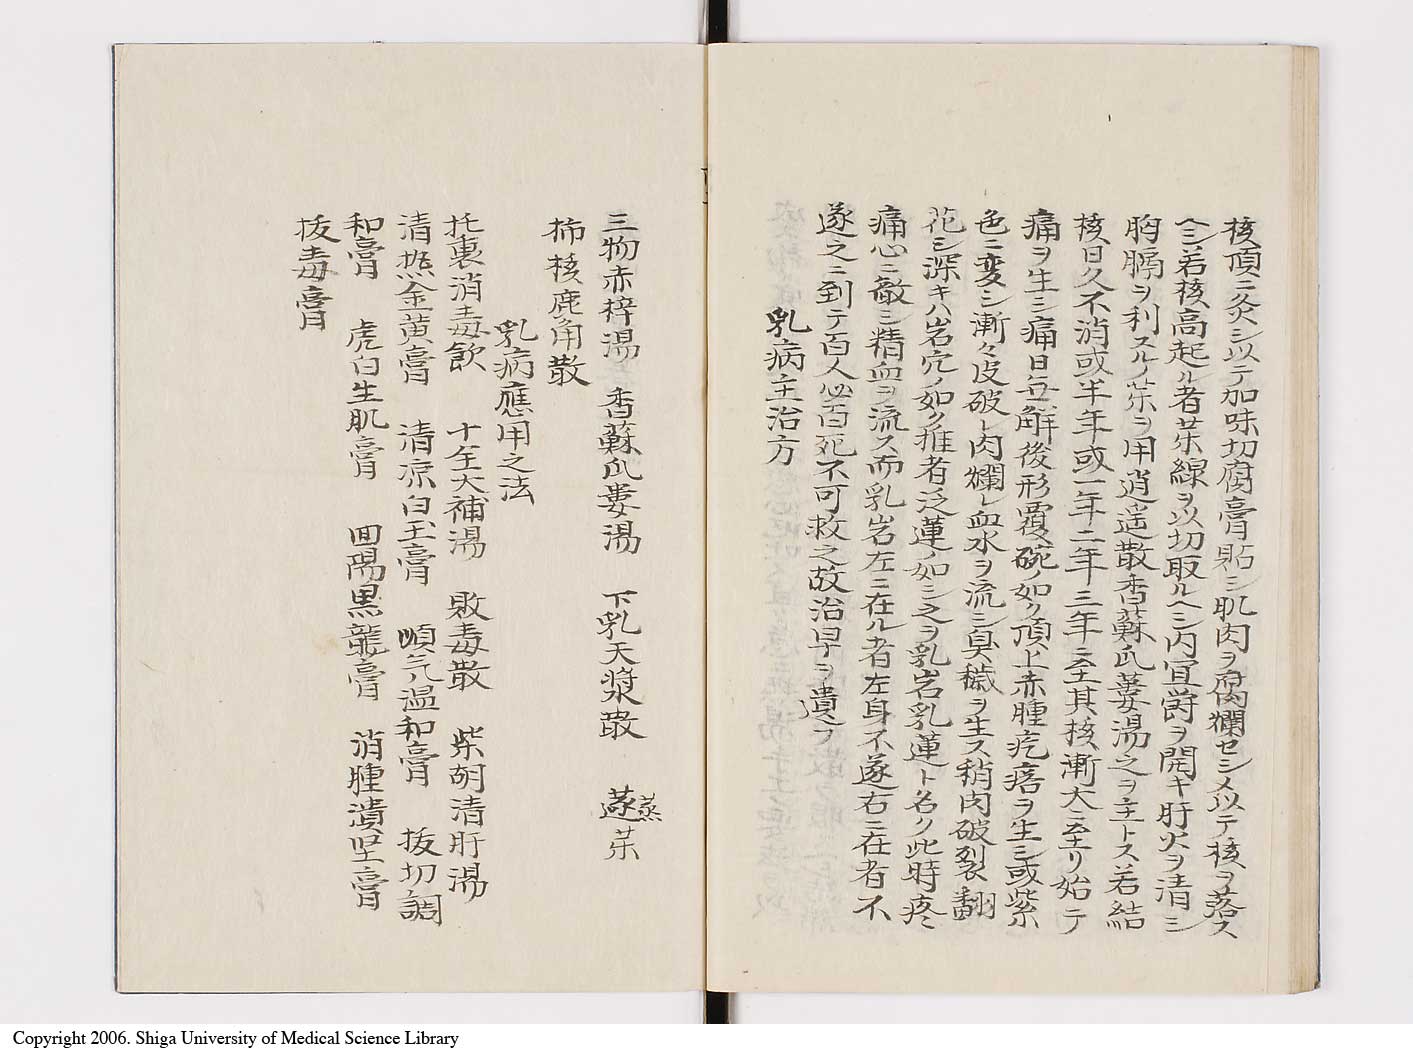 核頂ニ灸シ以テ加味切腐膏貼シ肌肉ヲ腐爛セシメ以テ核ヲ落ス
ヘシ若核高起ル者茶線ヲ以切取ルヘシ内宜欝ヲ開キ肝火ヲ清シ
胸膈ヲ利スルノ茶ヲ用逍遥散香蘇瓜蔞湯之ヲ主トス若結
核日久不消或半年或一年二年三年ニ至其核漸大ニ至リ始テ
痛ヲ生シ痛日無解後形覆碗ノ如ク頂上赤腫疙瘩ヲ生シ或紫
色ニ変シ漸々皮破レ肉爛レ血水ヲ流シ臭穢ヲ生ス稍肉破裂翻
花シ深キハ岩穴ノ如ク推者泛蓮ノ如シ之ヲ乳岩乳蓮ト名ク此時疼
痛心ニ敵シ精血ヲ流ス而乳岩左ニ在ル者左身不遂右ニ在者不
遂之ニ到テ百人必百死不可救之故治早ヲ遺フ
乳病主治方
三物赤梓湯 香蘇瓜蔞湯 下乳天漿散 蒸
茶
柿核鹿角散
乳病應用之法
托裏消毒飲 十全大補湯 敗毒散 柴胡清肝湯
清凞金黄膏 清凉白玉膏 順气温和膏 拔切調
和膏 虎白生肌膏 回陽黒龍膏 消腫潰坚膏
拔毒膏
Copyright 2006. Shiga University of Medical Science Library